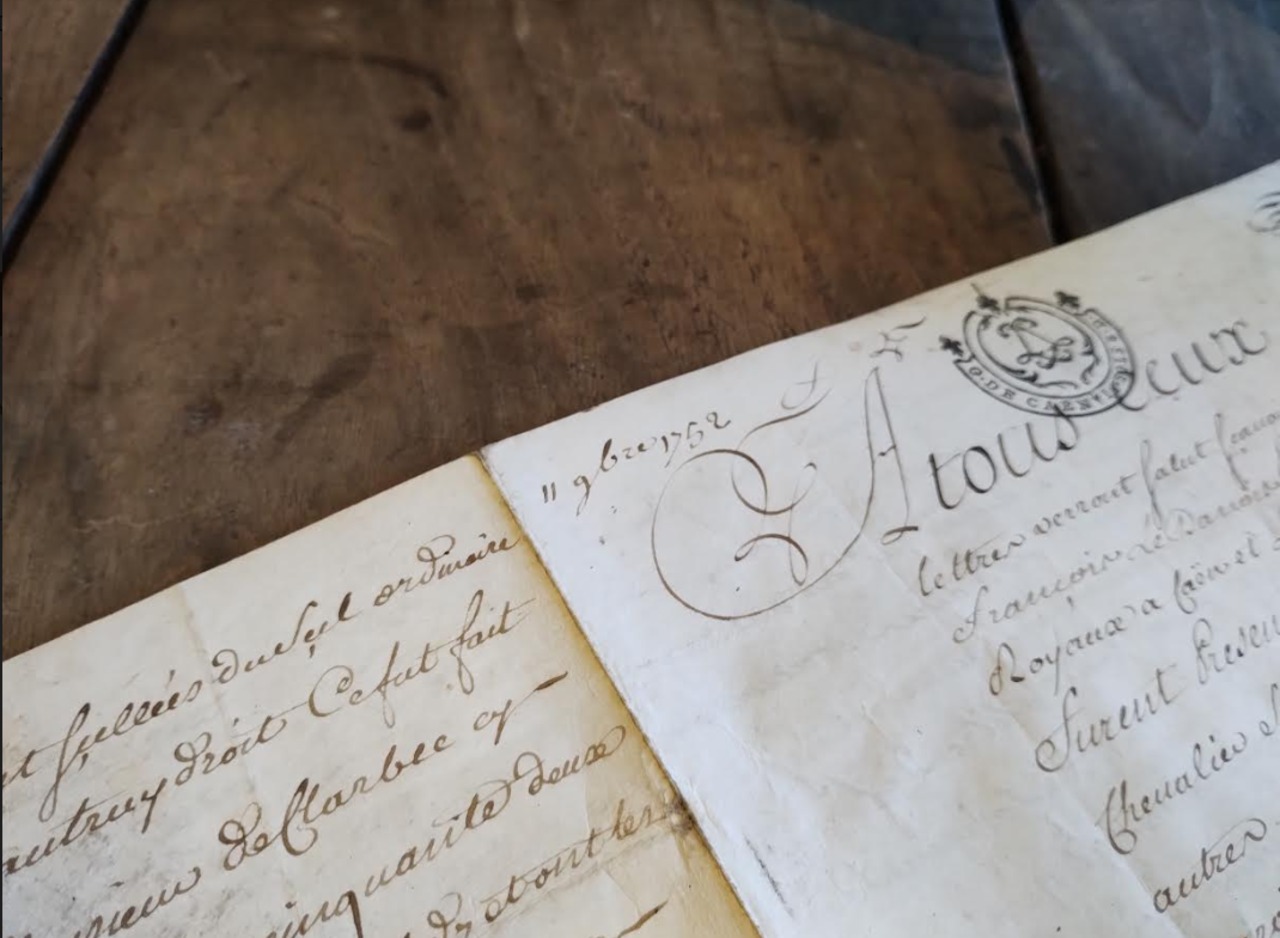 et scellées du scel ordinaire
autruy droit Ce fut fait
sieur de Clarbec cy –
cinquante deux
et dont les
11 9bre 1752
G. DE CAEN
A tous Ceux
lettres verront salut franço
françois Le Danois
Royaux a Caën et
Furent Presen
Chevalier S
autres